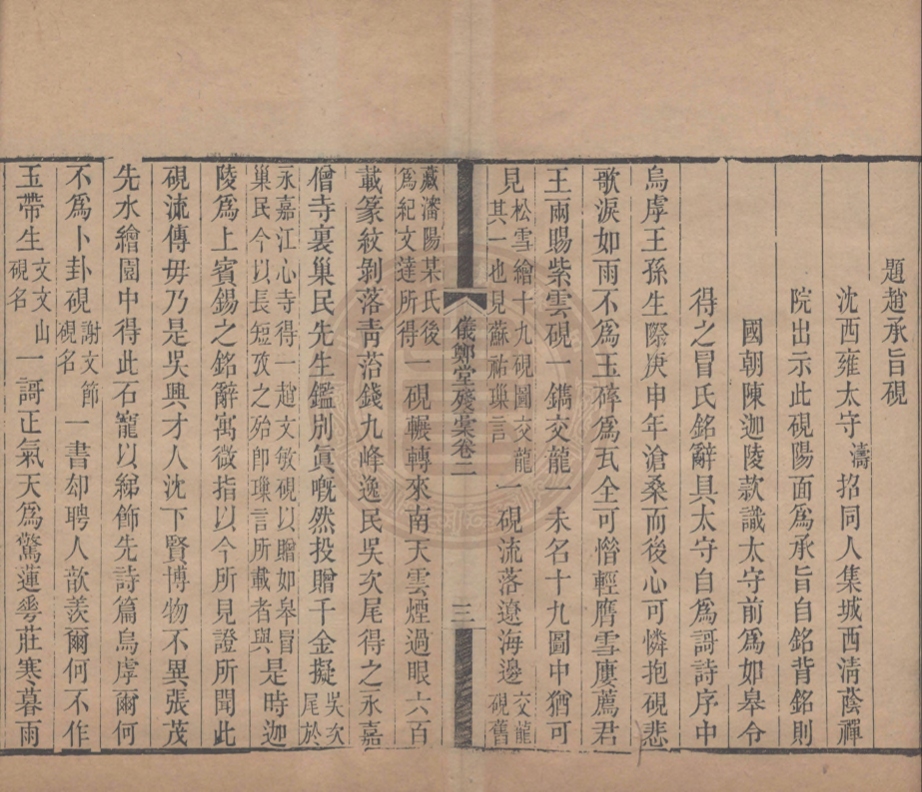 題趙承旨硯
沈西雍太守濤招同人集城西淸蔭禪
院出示此硯陽面爲承旨自銘背銘則
國朝陳迦陵款識太守前爲如皋令
得之冒氏銘辭具太守自爲謌詩序中
烏虖王孫生際庚申年滄桑而後心可憐抱硯悲
歌淚如雨不爲玉碎爲瓦全可惜輕膺雪廈薦君
王兩賜紫雲硯一鐫交龍一未名十九圖中猶可
見松雪繪十九硯圖交龍其一也見蘇祐璅言一硯流落遼海邊交龍硯舊
儀鄭堂殘稾卷二
三
藏瀋陽某氏後爲紀文達所得一硯輾轉來南天雲煙過眼六百
載篆紋剝落靑苔錢九峰逸民吳次尾得之永嘉
僧寺裏巢民先生鑑別眞嘅然投贈千金擬吳次尾於
永嘉江心寺得一趙文敏硯以贈如皋冒巢民今以長短攷之殆卽璅言所載者與是時迦
陵爲上賓錫之銘辭寓微指以今所見證所聞此
硯流傳毋乃是吳興才人沈下賢博物不異張茂
先水繪園中得此石寵以綈飾先詩篇烏虖爾何
不爲卜卦硯謝文節硯名一書却聘人歆羨爾何不作
玉帶生文文山硯名一謌正氣天爲驚蓮㠭莊寒暮雨